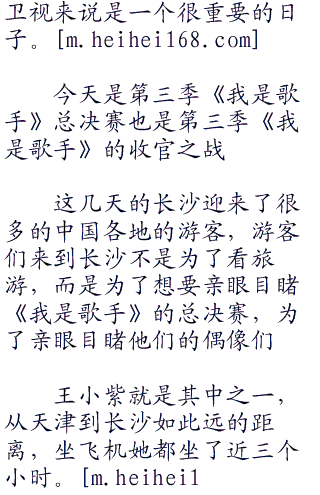 卫视来说是一个很重要的日
子。[m.heihei168.com]
今天是第三季《我是歌
手》总决赛也是第三季《我
是歌手》的收官之战
这几天的长沙迎来了很
多的中国各地的游客，游客
们来到长沙不是为了看旅
游，而是为了想要亲眼目睹
《我是歌手》的总决赛，为
了亲眼目睹他们的偶像们
王小紫就是其中之一，
从天津到长沙如此远的距
离，坐飞机她都坐了近三个
小时。[m.heihei1